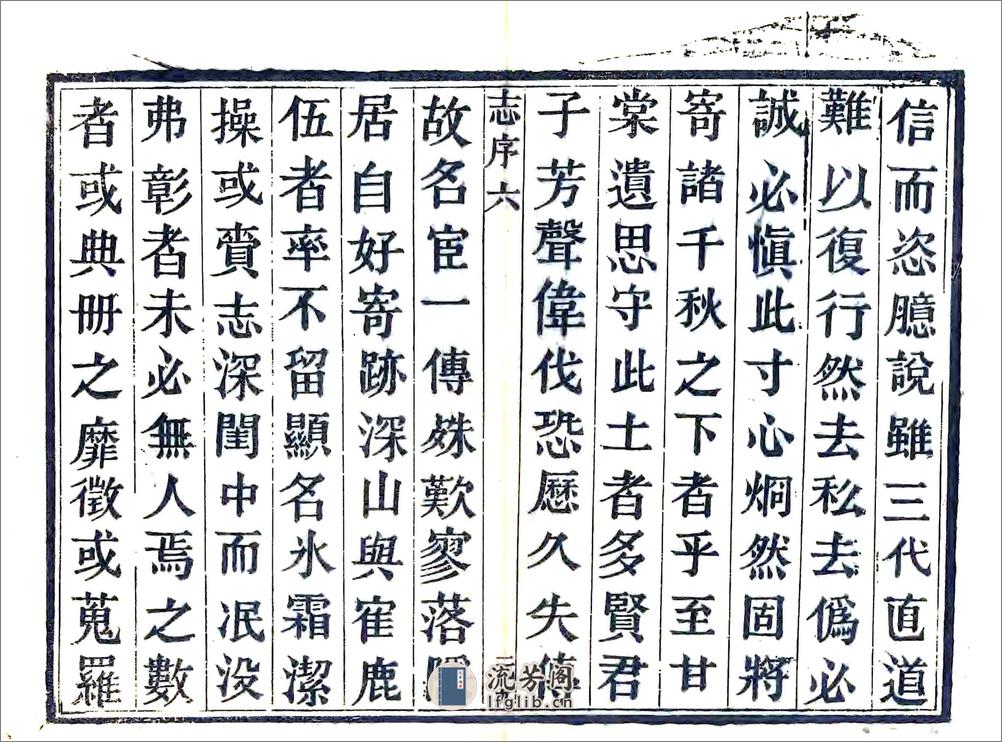 信而恣臆說雖三代直道
難以復行然去私去僞必
誠必愼此寸心炯然固將
寄諸千秋之下者乎至甘
棠遺思守此土者多賢君
子芳聲偉伐恐歷久失傳
志序六
故名宦一傳殊歎寥落
居自好寄跡深山與寉鹿
伍者率不留顯名氷霜潔
操或賫志深閨中而泯没
弗彰者未必無人焉之數
者或典册之靡徵或蒐羅
流芳阁
lfglib.cn